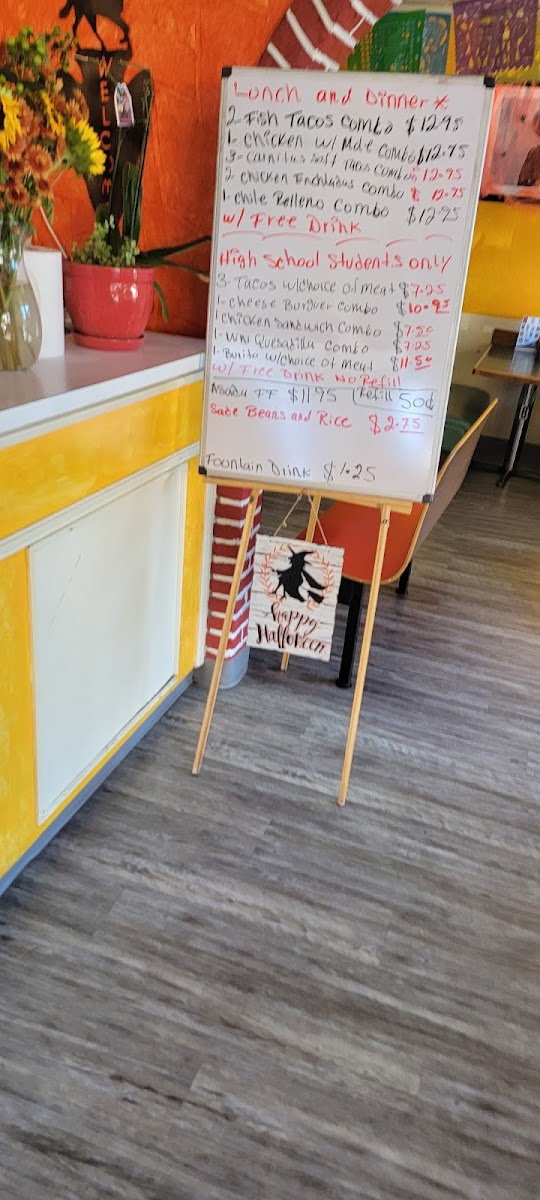 WELCOME
Lunch and Dinner *
2- Fish Tacos Combo $12.95
1- Chicken w/ Mole Combo $12.95
3- Carnitas Soft Tacos Combo $12.95
2 Chicken Enchiladas Combo $12.95
1- Chile Relleno Combo $12.95
w/ Free Drink
High School Students only
3- Tacos w/choice of meat $7.25
1- Cheese Burguer Combo $10.95
1 Chicken Sandwich Combo $7.50
1- Mini Quesadilla Combo $7.25
1- Burito w/choice of Meat $11.50
w/ Free Drink No Refill
FF $11.95 Refill 50¢
Side Beans and Rice $2.75
Foontain Drink $1.25
happy
Halloween